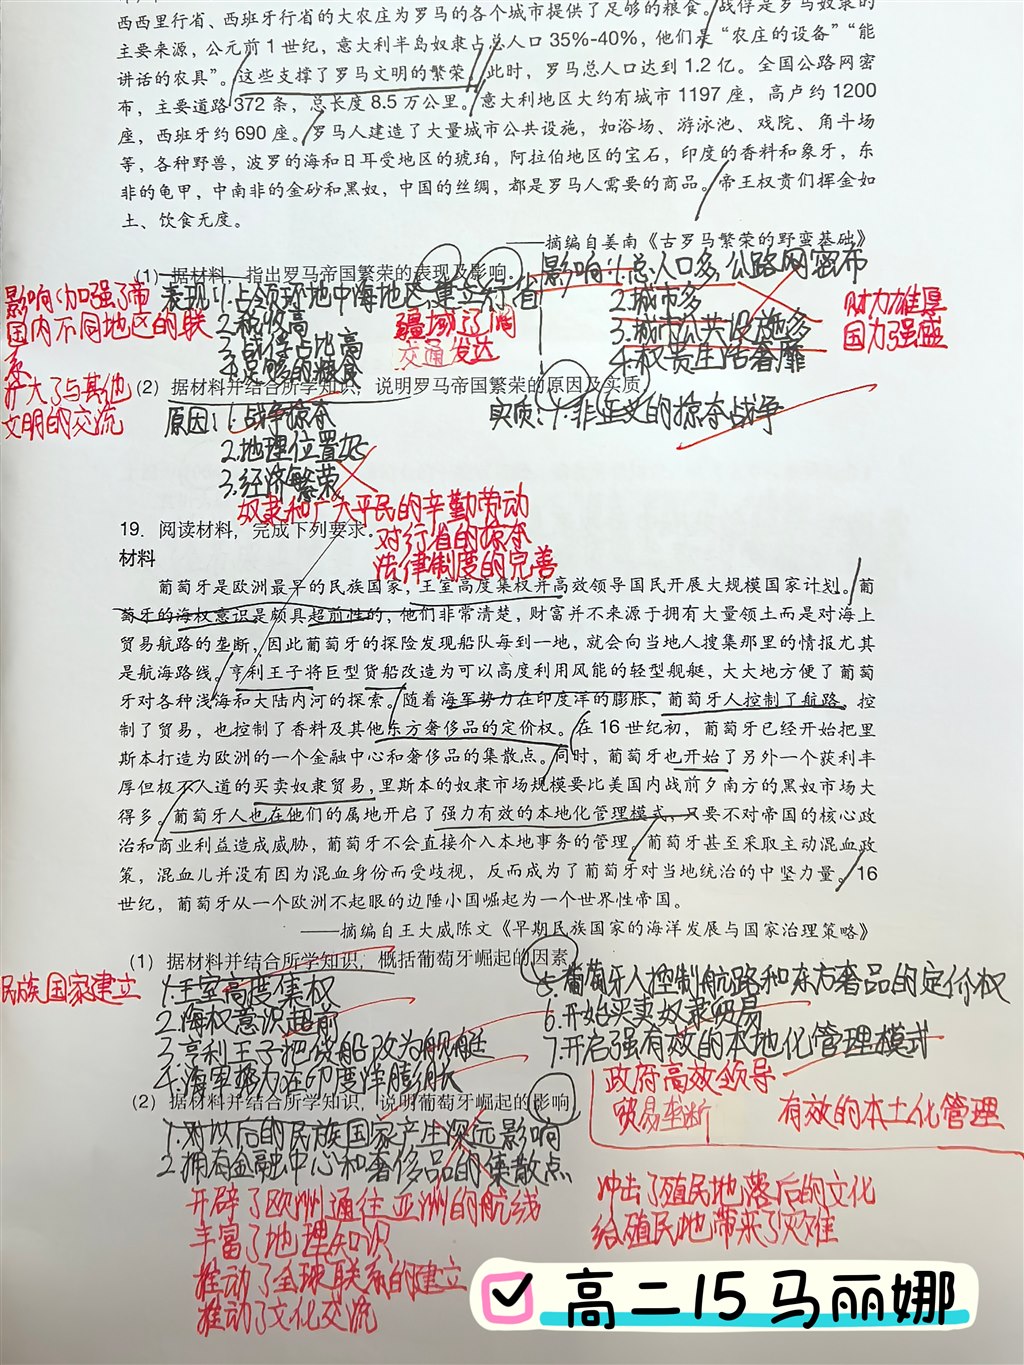 西西里行省、西班牙行省的大农庄为罗马的各个城市提供了足够的粮食。战俘是罗马奴隶的
主要来源，公元前1世纪，意大利半岛奴隶占总人口35%-40%，他们是“农庄的设备”“能
讲话的农具”。这些支撑了罗马文明的繁荣。此时，罗马总人口达到1.2亿。全国公路网密
布，主要道路372条，总长度8.5万公里。意大利地区大约有城市1197座，高卢约1200
座，西班牙约690座。罗马人建造了大量城市公共设施，如浴场、游泳池、戏院、角斗场
等，各种野兽，波罗的海和日耳受地区的琥珀，阿拉伯地区的宝石，印度的香料和象牙，东
非的龟甲，中南非的金砂和黑奴，中国的丝绸，都是罗马人需要的商品。帝王权贵们挥金如
土、饮食无度。
——摘编自姜南《古罗马繁荣的野蛮基础》
(1) 据材料，指出罗马帝国繁荣的表现及影响。
影响：加强了帝
国内不同地区的联
系
扩大了与其他
文明的交流
表现：1.占领环地中海地区，建立行省
2.税收高
3.战俘占地高
4.足够的粮食
疆域辽阔
交通发达
影响：1.总人口多，公路网密布
2.城市多
3.城市公共设施多
4.权贵生活奢靡
财力雄厚
国力强盛
(2) 据材料并结合所学知识，说明罗马帝国繁荣的原因及实质
原因：1.战争掠夺
2.地理位置好
3.经济繁荣
奴隶和广大平民的辛勤劳动
对行省的掠夺
法律制度的完善
实质：1.非正义的掠夺战争
19. 阅读材料，完成下列要求。
材料
葡萄牙是欧洲最早的民族国家，王室高度集权并高效领导国民开展大规模国家计划。葡
萄牙的海权意识是颇具超前性的，他们非常清楚，财富并不来源于拥有大量领土而是对海上
贸易航路的垄断，因此葡萄牙的探险发现船队每到一地，就会向当地人搜集那里的情报尤其
是航海路线。亨利王子将巨型货船改造为可以高度利用风能的轻型舰艇，大大地方便了葡萄
牙对各种浅海和大陆内河的探索。随着海军势力在印度洋的膨胀，葡萄牙人控制了航路，控
制了贸易，也控制了香料及其他东方奢侈品的定价权。在16世纪初，葡萄牙已经开始把里
斯本打造为欧洲的一个金融中心和奢侈品的集散点。同时，葡萄牙也开始了另外一个获利丰
厚但极不人道的买卖奴隶贸易，里斯本的奴隶市场规模要比美国内战前夕南方的黑奴市场大
得多。葡萄牙人也在他们的属地开启了强力有效的本地化管理模式，只要不对帝国的核心政
治和商业利益造成威胁，葡萄牙不会直接介入本地事务的管理。葡萄牙甚至采取主动混血政
策，混血儿并没有因为混血身份而受歧视，反而成为了葡萄牙对当地统治的中坚力量。16
世纪，葡萄牙从一个欧洲不起眼的边陲小国崛起为一个世界性帝国。
——摘编自王大威陈文《早期民族国家的海洋发展与国家治理策略》
(1) 据材料并结合所学知识，概括葡萄牙崛起的因素
民族国家建立
1.王室高度集权
2.海权意识超前
3.亨利王子把货船改为舰艇
4.海军势力在印度洋膨胀
5.葡萄牙人控制航路和东方奢品的定价权
6.开始买卖奴隶贸易
7.开启强有效的本地化管理模式
政府高效领导
贸易垄断
有效的本土化管理
(2) 据材料并结合所学知识，说明葡萄牙崛起的影响
1.对以后的民族国家产生深远影响
2.拥有金融中心和奢侈品的集散点
开辟了欧洲通往亚洲的航线
丰富了地理知识
推动了全球联系的建立
推动了文化交流
冲击了殖民地落后的文化
给殖民地带来了灾难
高二15马丽娜